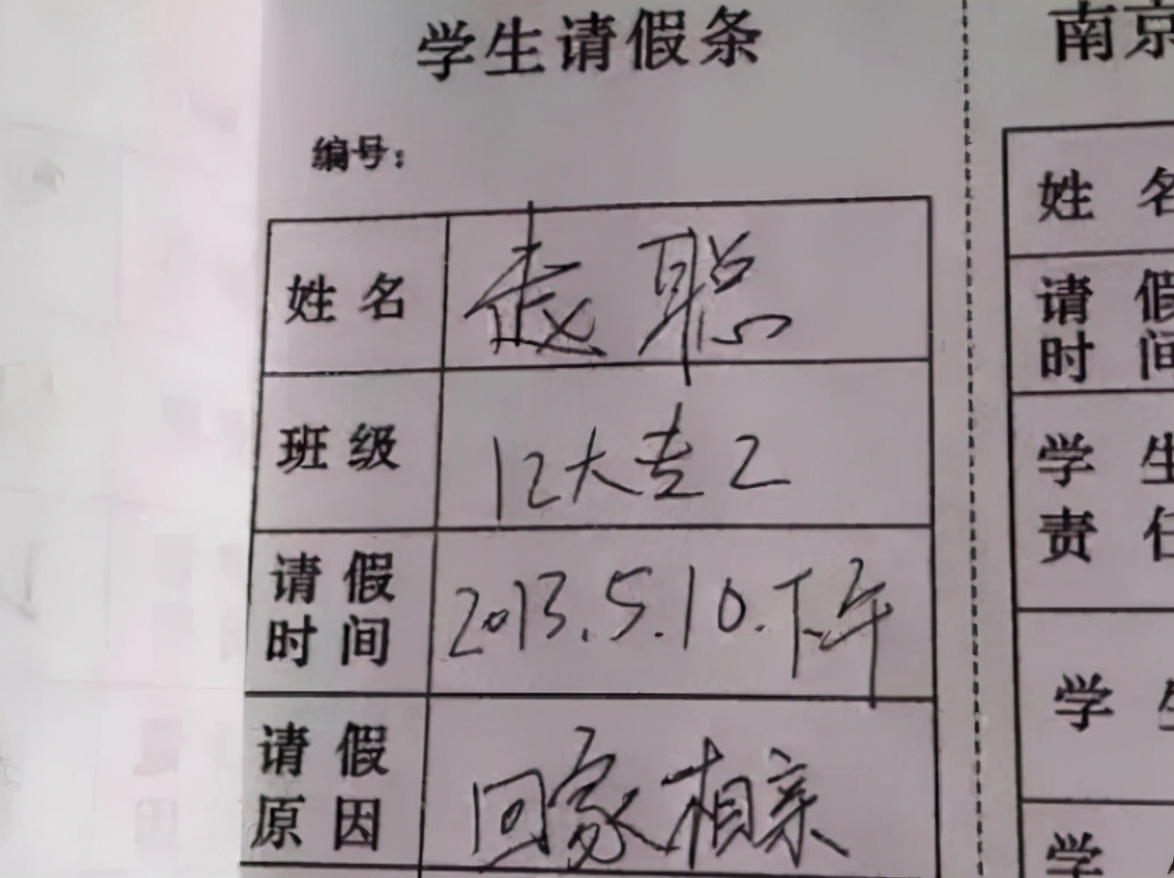 学生请假条
编号:
姓名 赵聪
班级 12大专2
请假时间 2013.5.10.下午
请假原因 回家相亲
南京
姓名
请假时间
学生
责任
学生
学